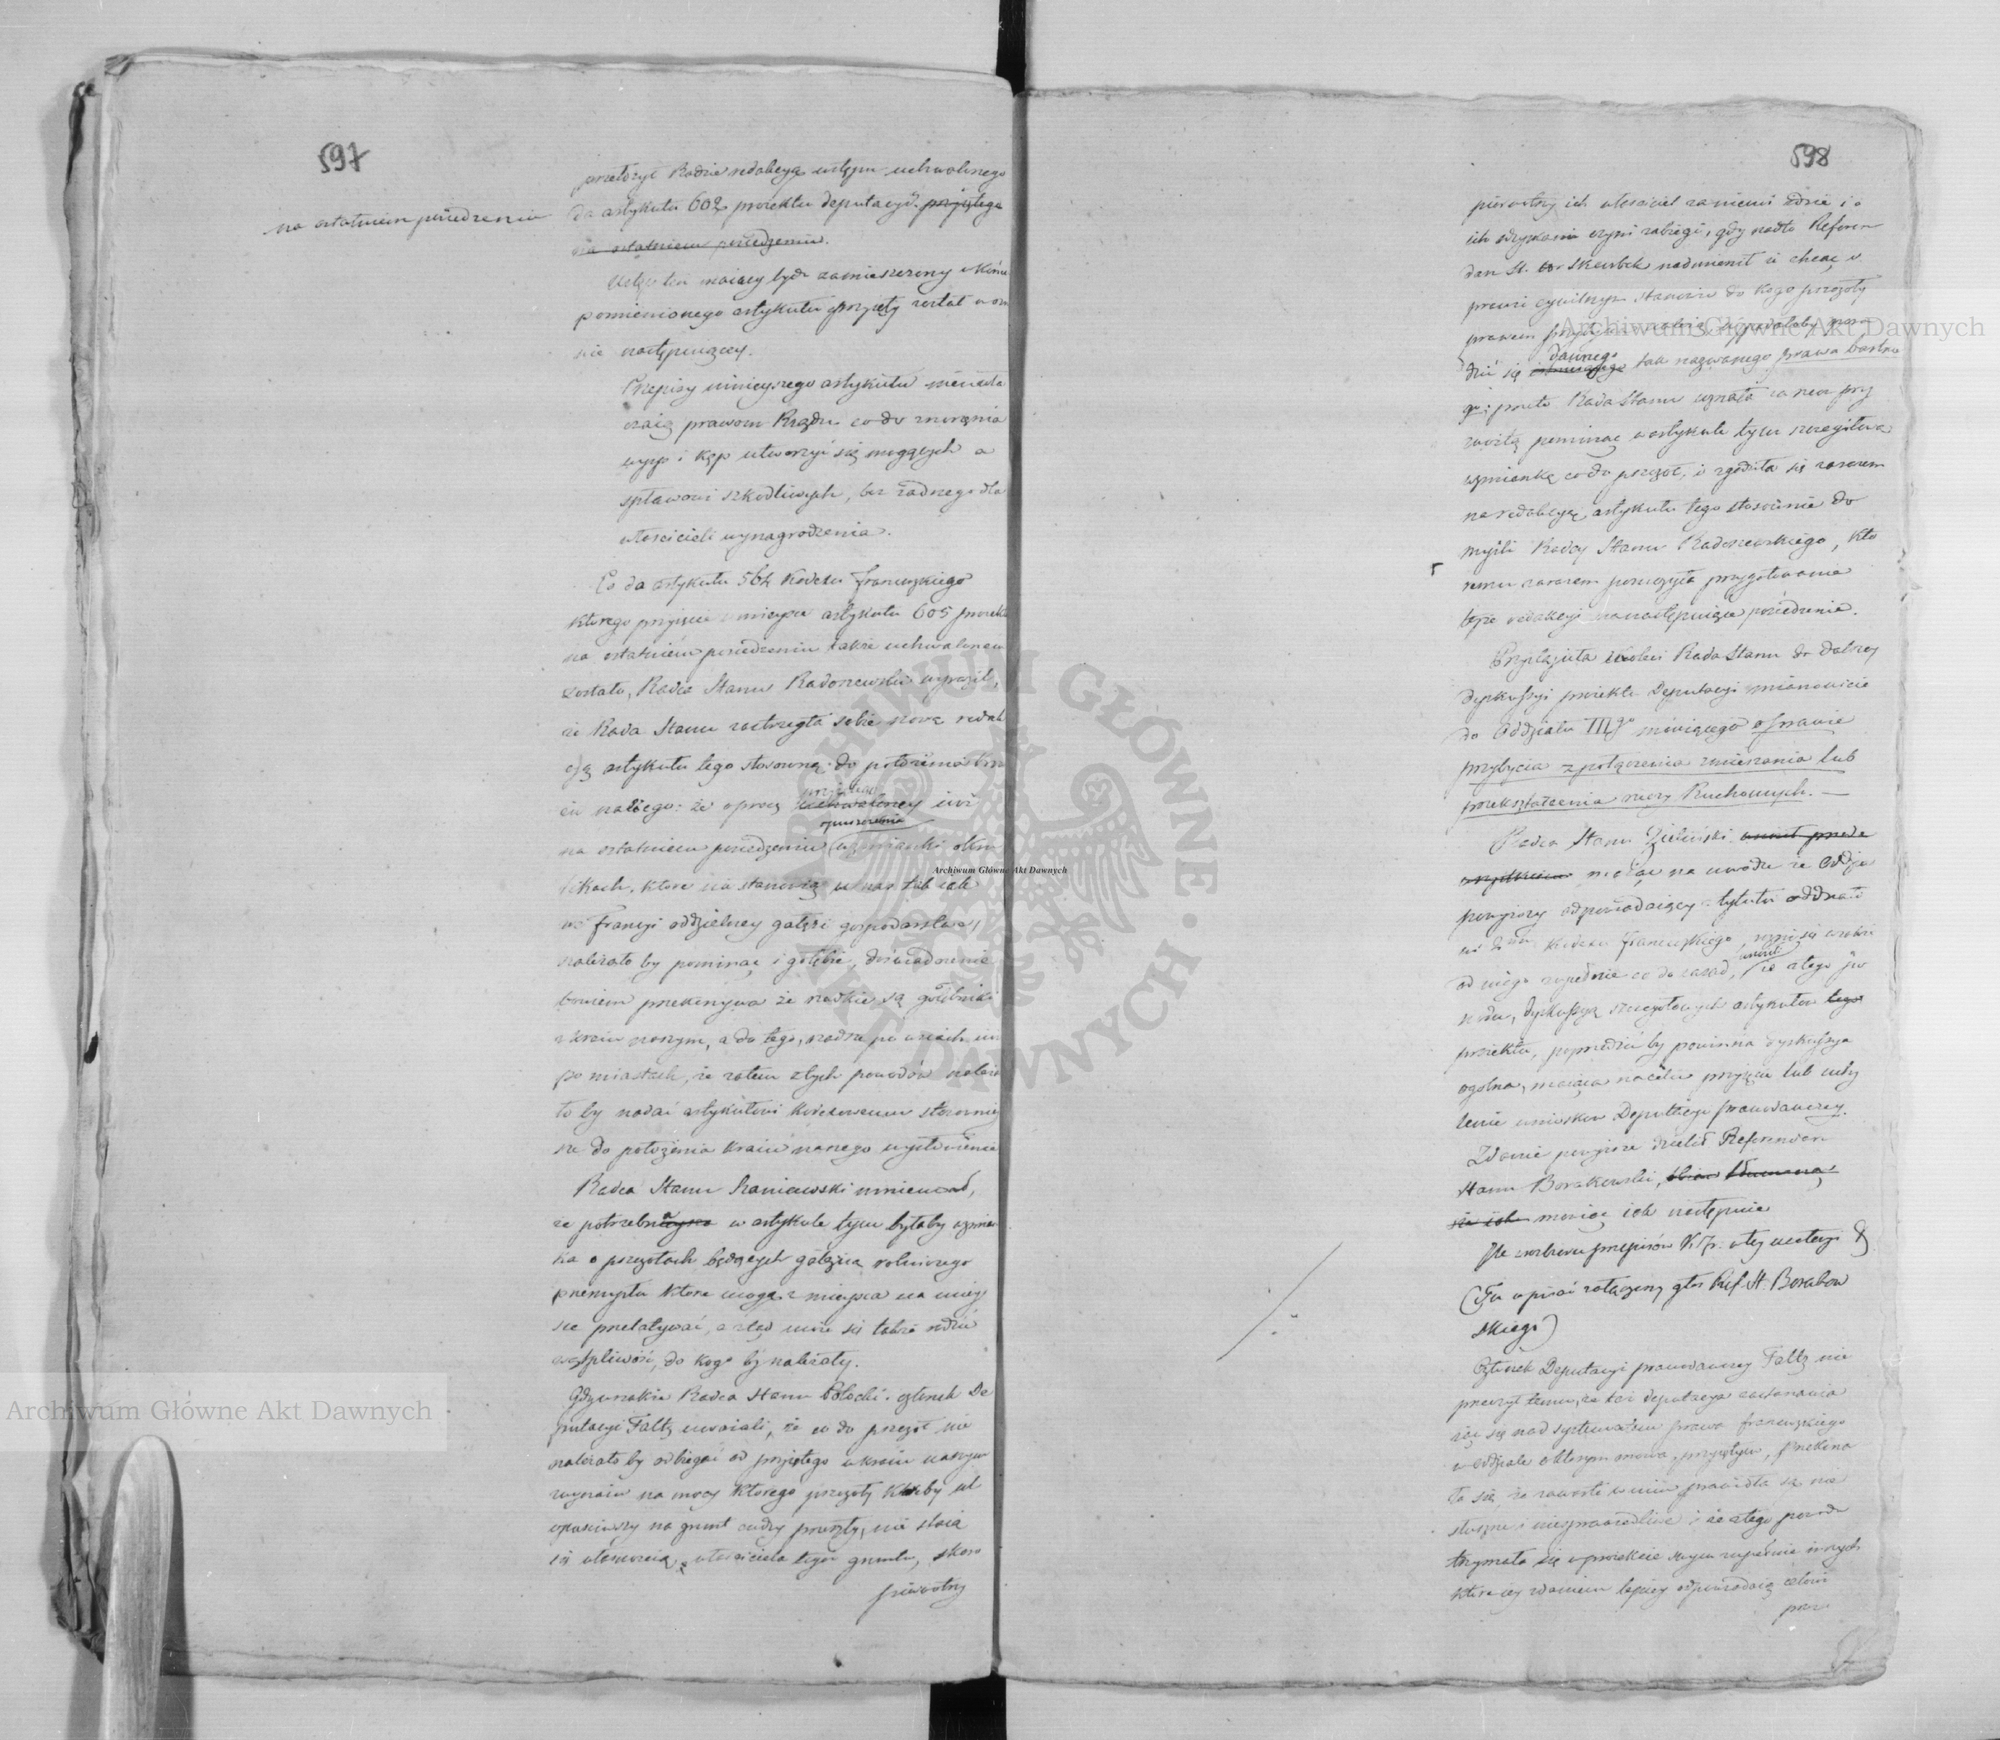 597
na ostatniem posiedzeniu
przełożył Radzie redakcyą ustępu uchwalonego
do artykułu 602 proiektu deputacyi przyiętego
na ostatniem posiedzeniu.
Ustęp ten maiący bydź zamieszczony w końcu
pomienionego artykułu przyięty został w os
nie następuiącey.
Przepisy ninieyszego artykułu nieubli
żaią prawom Rządu co do znoszenia
wysp i kęp utworzyć się mogących a
spławowi szkodliwych, bez żadnego dla
właścicieli wynagrodzenia.
Co do artykułu 564 Kodexu francuzkiego
którego przyięcie w mieysce artykułu 605 proiektu
na ostatniem posiedzeniu także uchwalonem
zostało, Radca Stanu Radoszewski wyraził,
że Rada Stanu zastrzegła sobie nową redak
cyą artykułu tego stosowną do położenia kra
iu naszego: że oprócz uchwaloney iuż
przyiętego
opuszczenia
na ostatniem posiedzeniu wzmianki o kró
likach, które nie stanowią u nas tak iak
we francyi oddzielney gałęzi gospodarstwa,
należało by pominąć i gołębie, doświadczenie
bowiem przekonywa że rzadkie są gołębniki
w kraiu naszym, a do tego, rzadsze po wsiach niż
po miastach, że zatem z tych powodów należa
ło by nadać artykułowi Kodexowemu stosowniey
sze do położenia kraiu naszego wysłowienie
Radca Stanu Staniewski mniemał,
że potrzebna w artykule tym byłaby wzmian
ka o pszczołach będących gałęzią rolniczego
przemysłu które mogą z mieysca na miey
sce przelatywać, a ztąd może się także rodzić
wątpliwość, do kogo by należały.
Gdy wszakże Radca Stanu Potocki i członek De
putacyi Faltz uważali, że co do pszczół nie
należało by odbiegać od przyiętego w kraiu naszym
zwyczaiu na mocy którego pszczoły któreby ul
opuściwszy na grunt cudzy przeszły, nie staią
się własnością właściciela tegoż gruntu, skoro
pierwotny
598
pierwotny ich właściciel za niemi idzie i o
ich odzyskanie czyni zabiegi, gdy nadto Referen
darz St. Skarbek nadmienił iż chcąc w
prawie cywilnym stanowić do kogo pszczoły
prawem przybycia należą wypadałoby
dzić się istnieiącego tak nazwanego prawa bartne
dawnego
go; przeto Rada Stanu uznała za rzecz przy
zwoitą pominąć w artykule tym szczegółową
wzmiankę co do pszczół, i zgodziła się zarazem
na redakcyą artykułu tego stosownie do
myśli Radcy Stanu Radoszewskiego, któ
remu zarazem poruczyła przygotowanie
teyże redakcyi na następuiące posiedzenie.
Przystąpiła z kolei Rada Stanu do dalszey
dyskussyi proiektu Deputacyi mianowicie
do Oddziału IIIgo mówiącego o prawie
przybycia z połączenia zmieszania lub
przekształcenia rzeczy Ruchomych. —
Radca Stanu Zieliński wniósł przede
wszystkiem maiąc na uwadze że Oddział
powyższy odpowiadaiący tytułu oddziało
wi Kodexu francuzkiego, różni się wcale
od niego zupełnie co do zasad, że z tego po
uważał
wodu, dyskussyą szczegółowych artykułów tego
proiektu, poprzedzić by powinna dyskussya
ogólna, maiąca na celu przyięcie lub uchy
lenie wniosków Deputacyi prawodawczey.
Zdanie powyższe dzielił Referendarz
Stanu Borakowski, mówiąc iak następuie
Ile w zbiorze przepisów K. Fr. o tey materyi &
(Tu wpisać załączony głos Ref. St. Borakow
skiego)
Członek Deputacyi prawodawczey Faltz nie
przeczył temu, że też deputacya zastanawia
iąc się nad systematem prawa francuzkiego
w oddziale o którym mowa, przyiętym, przekona
ła się, że zawarte w nim prawidła są nie
słuszne i niesprawiedliwe i że z tego powodu
trzymała się w proiekcie swym zupełnie innych
które iey zdaniem lepiey odpowiadaią celowi